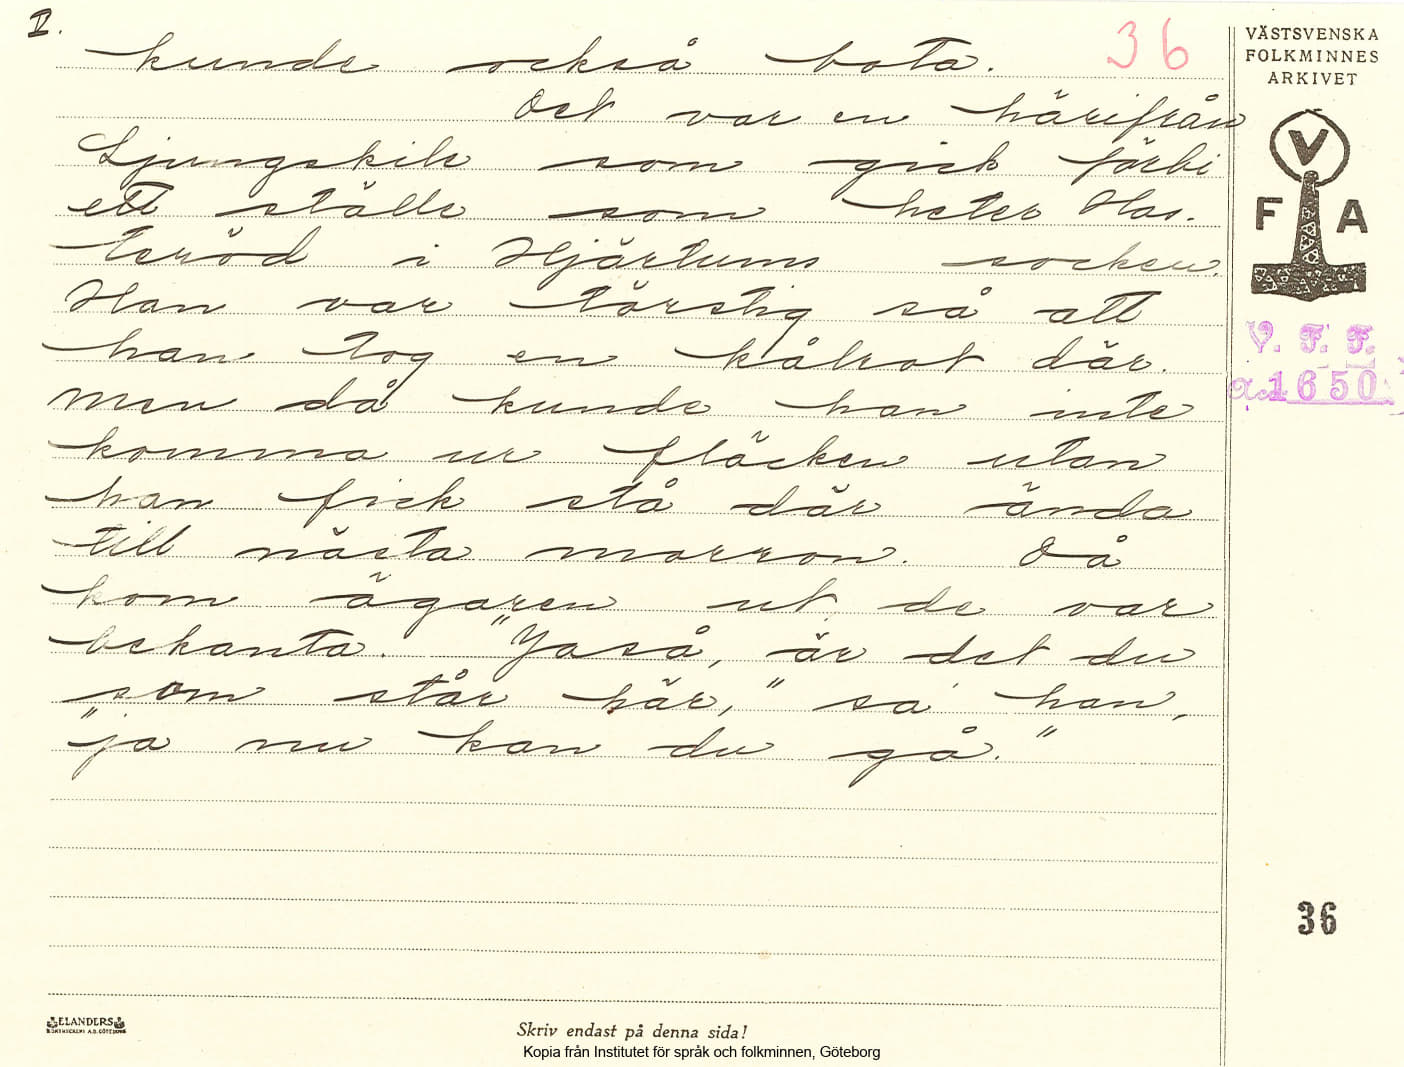 II.
36
kunde också bota.
Det var en härifrån
Ljungskile som gick förbi
ett ställe som heter Has-
teröd i Hjärtums socken.
Han var törstig så att
han tog en kålrot där.
Men då kunde han inte
komma ur fläcken utan
han fick stå där ända
till nästa morron. Då
kom ägaren ut, de var
bekanta. "Jaså, är det du
som står här," sa han,
"ja nu kan du gå."
VÄSTSVENSKA
FOLKMINNES
ARKIVET
V
F A
V. F. F.
1650
36
ELANDERS
Skriv endast på denna sida!
Kopia från Institutet för språk och folkminnen, Göteborg